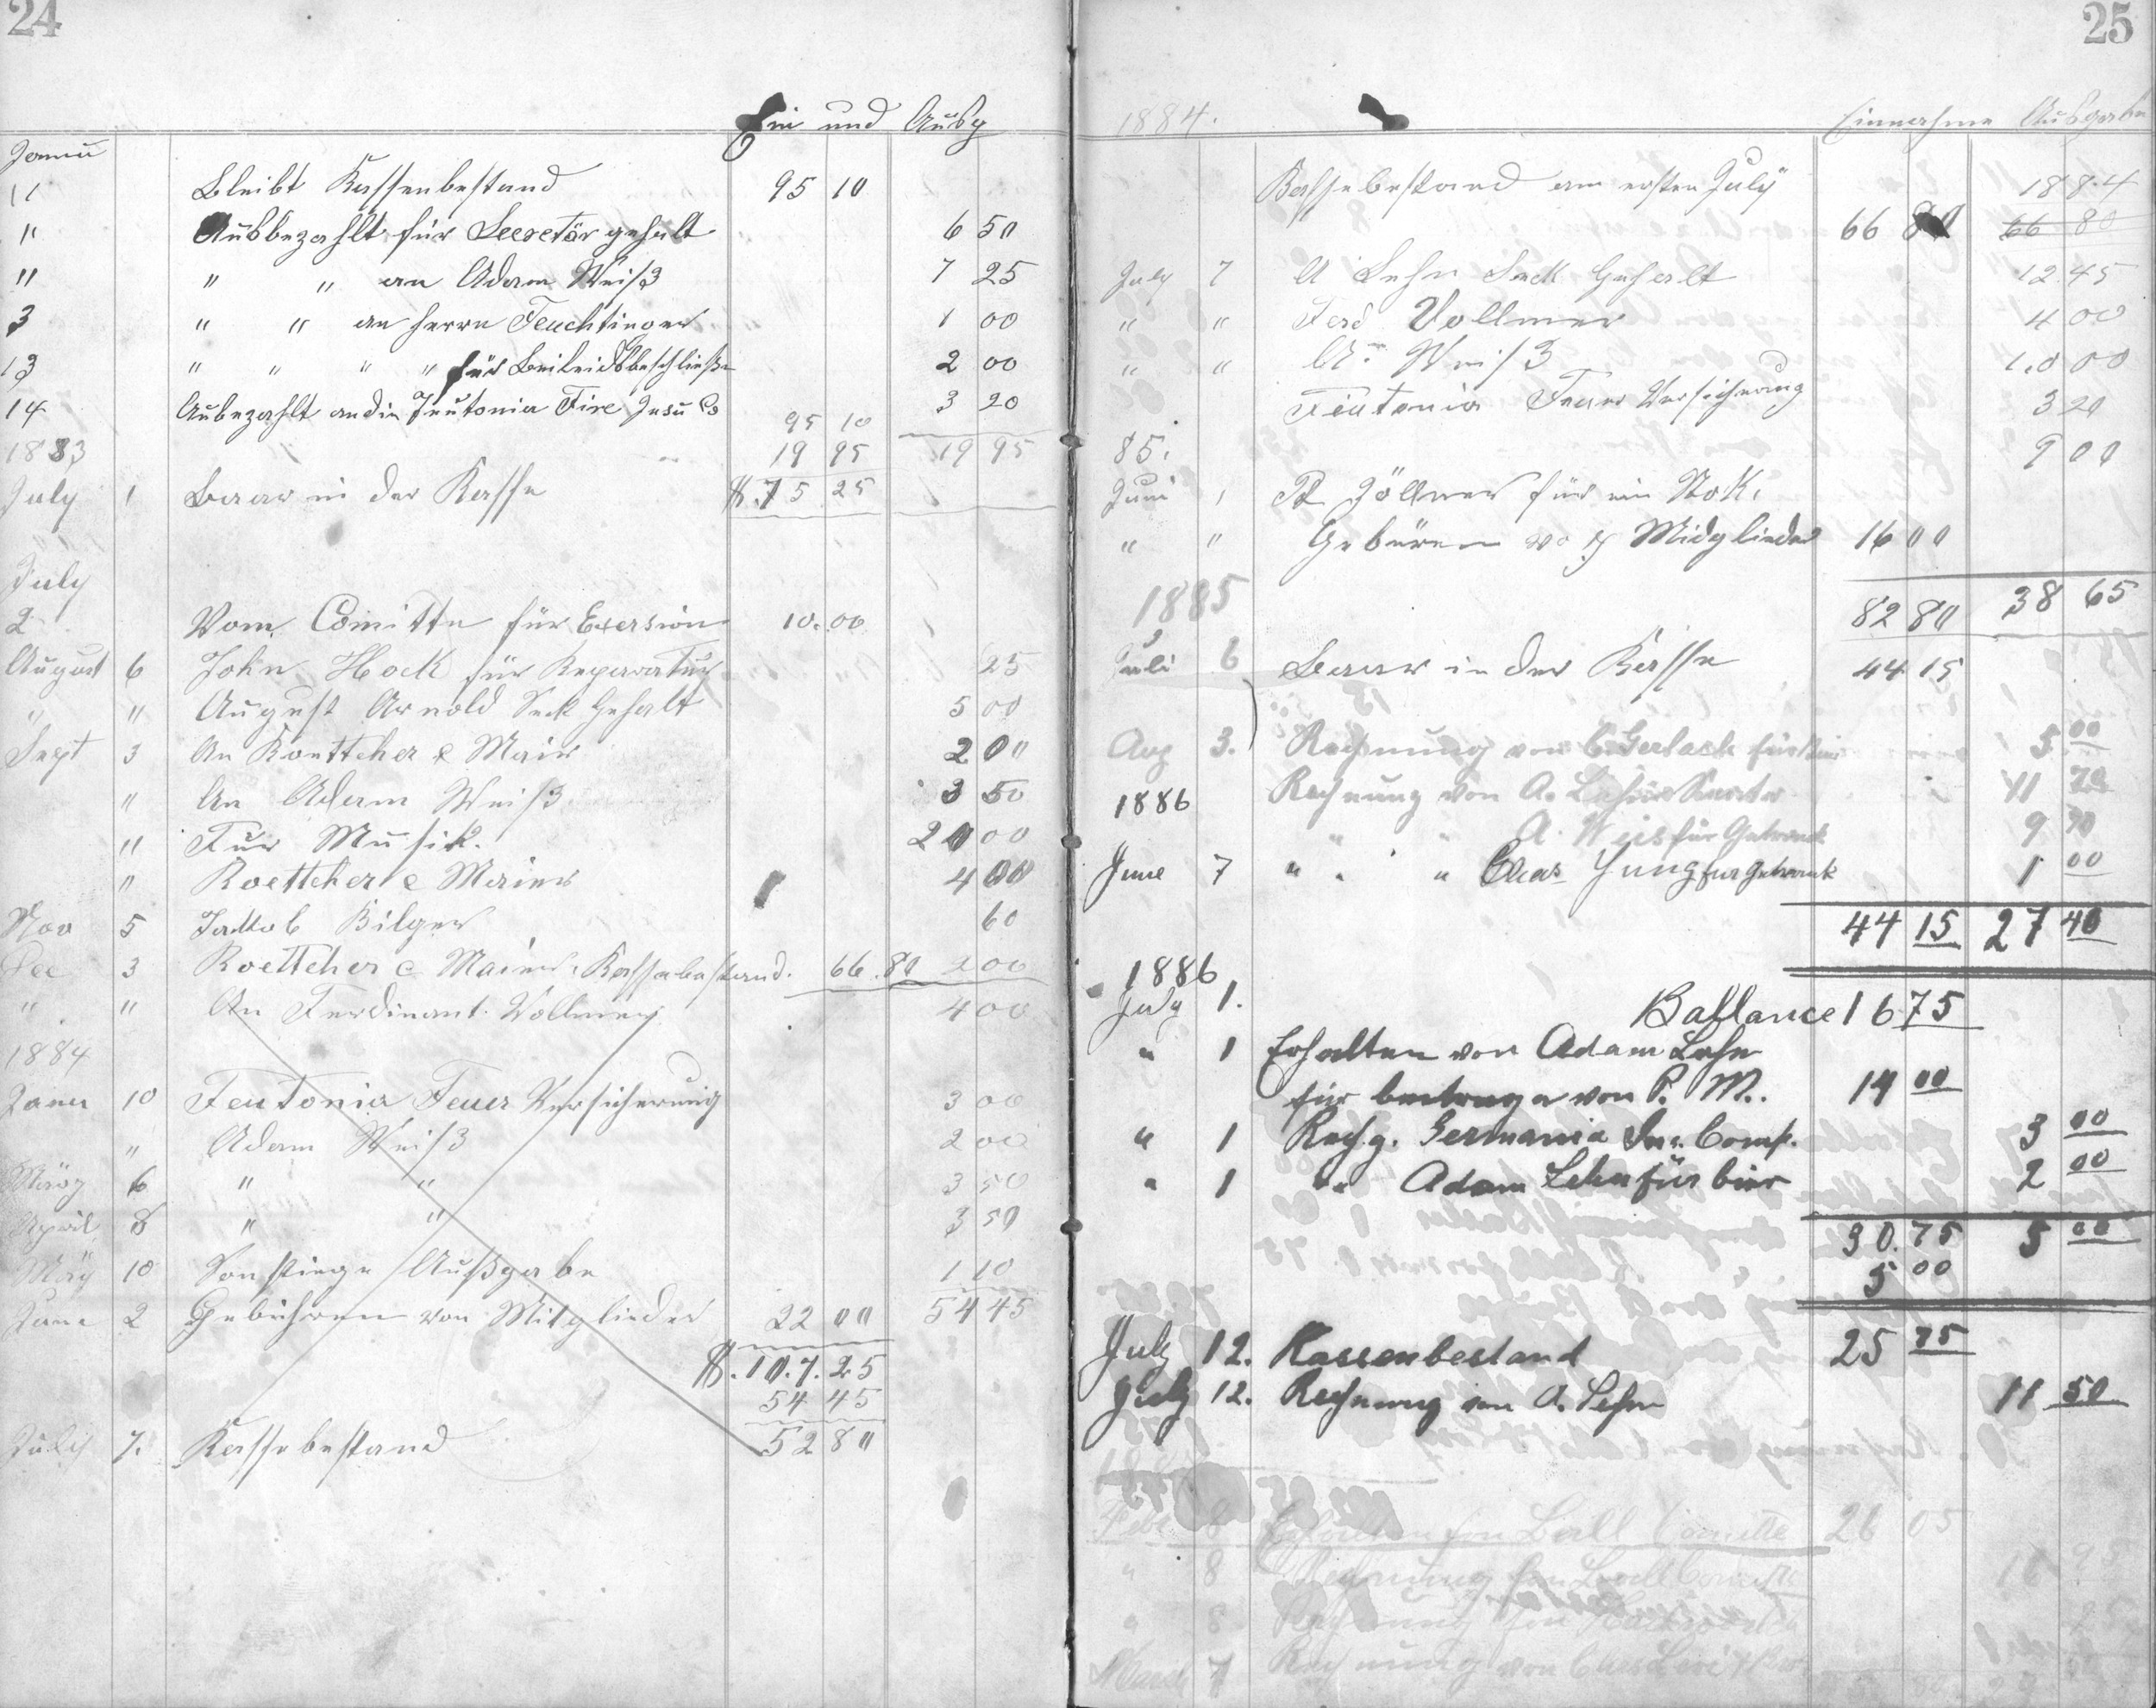 24
Ein und Ausg
Janu
" Bleibt Kassenbestand 95 10
" Ausbezahlt für Secretär gehalt 6 50
" " " an Adam Weiß 7 25
3 " " an Herrn Feuchtinger 1 00
13 " " " " für Beileidsbeschließe 2 00
14 Aubezahlt an die Teutonia Fire Insu Co 3 20
95 10
1883 19 95 19 95
July 1 Baar in der Kasse $.75 25
July
2 Vom Comitte für Exersion 10.00
August 6 John Hock für Reparatur 25
" " August Arnold Seck Gehalt 5 00
Sept 3 An Roettcher & Mair 2 00
" An Adam Weiß 3 50
" Fur Musik. 20 00
" Roettcher & Maier 4 00
Nov 5 Jakob Bilger 60
Dec 3 Roettcher & Maier. Kassabestand. 66.80 2 00
" " An Ferdinant Vollmer 4 00
1884
Janu 10 Teutonia Feuer Versicherung 3 00
" Adam Weiß 2 00
März 6 " " 3 50
April 8 " " 3 50
May 10 Sonstiege Außgabe 1 10
June 2 Gebühren von Mitglieder 22 00 54 45
$.10.7.25
54 45
July 7. Kassebestand 52 80
25
1884. Einnahme Ausgabe
Kassebestand am ersten July 1884
66 80 66 80
July 7 A Lehn Seck Gehalt 12 45
" " Ferd Vollmer 4 00
" " Weiß 10 00
Teutonia Feuer Versicherung 3 20
85. 9 00
Juni 1 Zöllner für ein Stok.
" " Gebüren Midglieder 16 00
1885 82 80 38 65
Juli 6 Baar in der Kasse 44 15
Aug 3. Rechnung von C. Gerlach für Bier 5 00
1886 Rechnung von A. Lehn 11 70
" " A. Weis für Getraenk 9 70
June 7 " " " Chas Jung fur Getraenk 1 00
44 15 27 40
1886
July 1. Ballance 16 75
" 1 Erhalten von Adam Lehn
für beitrage von P. M. 14 00
" 1 Rechg. Germania Ins. Comp. 3 00
" 1 " Adam Lehn für bier 2 00
30.75 5 00
5 00
July 12. Kassenbestand 25 75
July 12. Rechnung von A. Lehn 11 50
Feb 8 Erhalten von Ball Comitte 26 05
" 8 Rechnung von Ball Comitte 16 95
" 8 Rechnung von
March 7 Rechnung von Chas